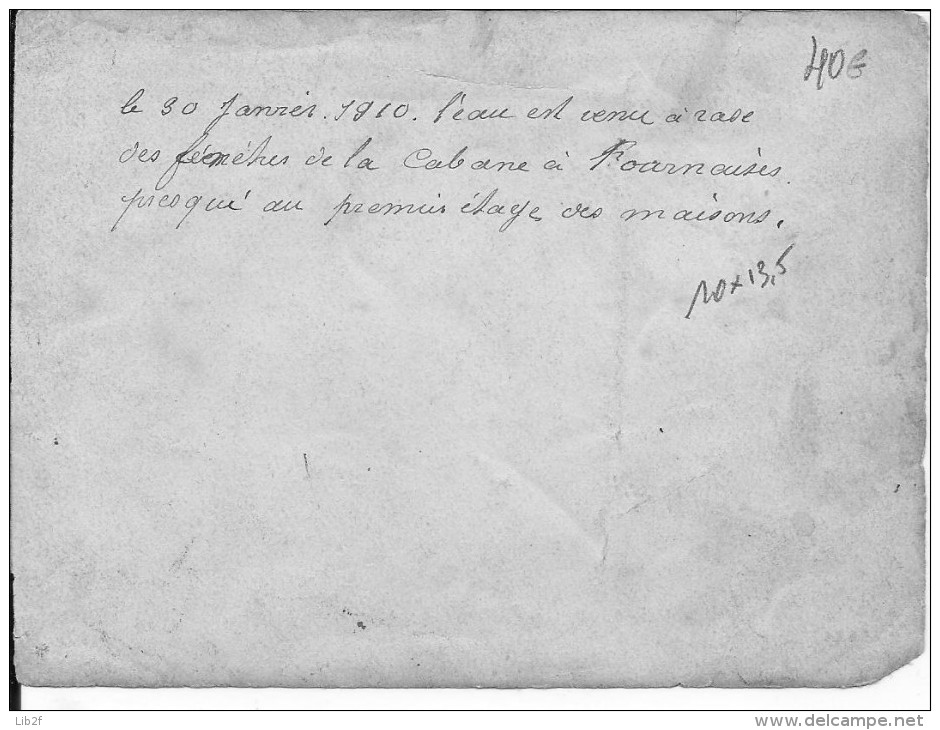 40€
le 30 Janvier. 1910. l'eau est venu à rase
des fenêtres de la Cabane à Fournaises.
presqué au premier étage des maisons.
10 x 13,5
Lib2f
www.delcampe.net